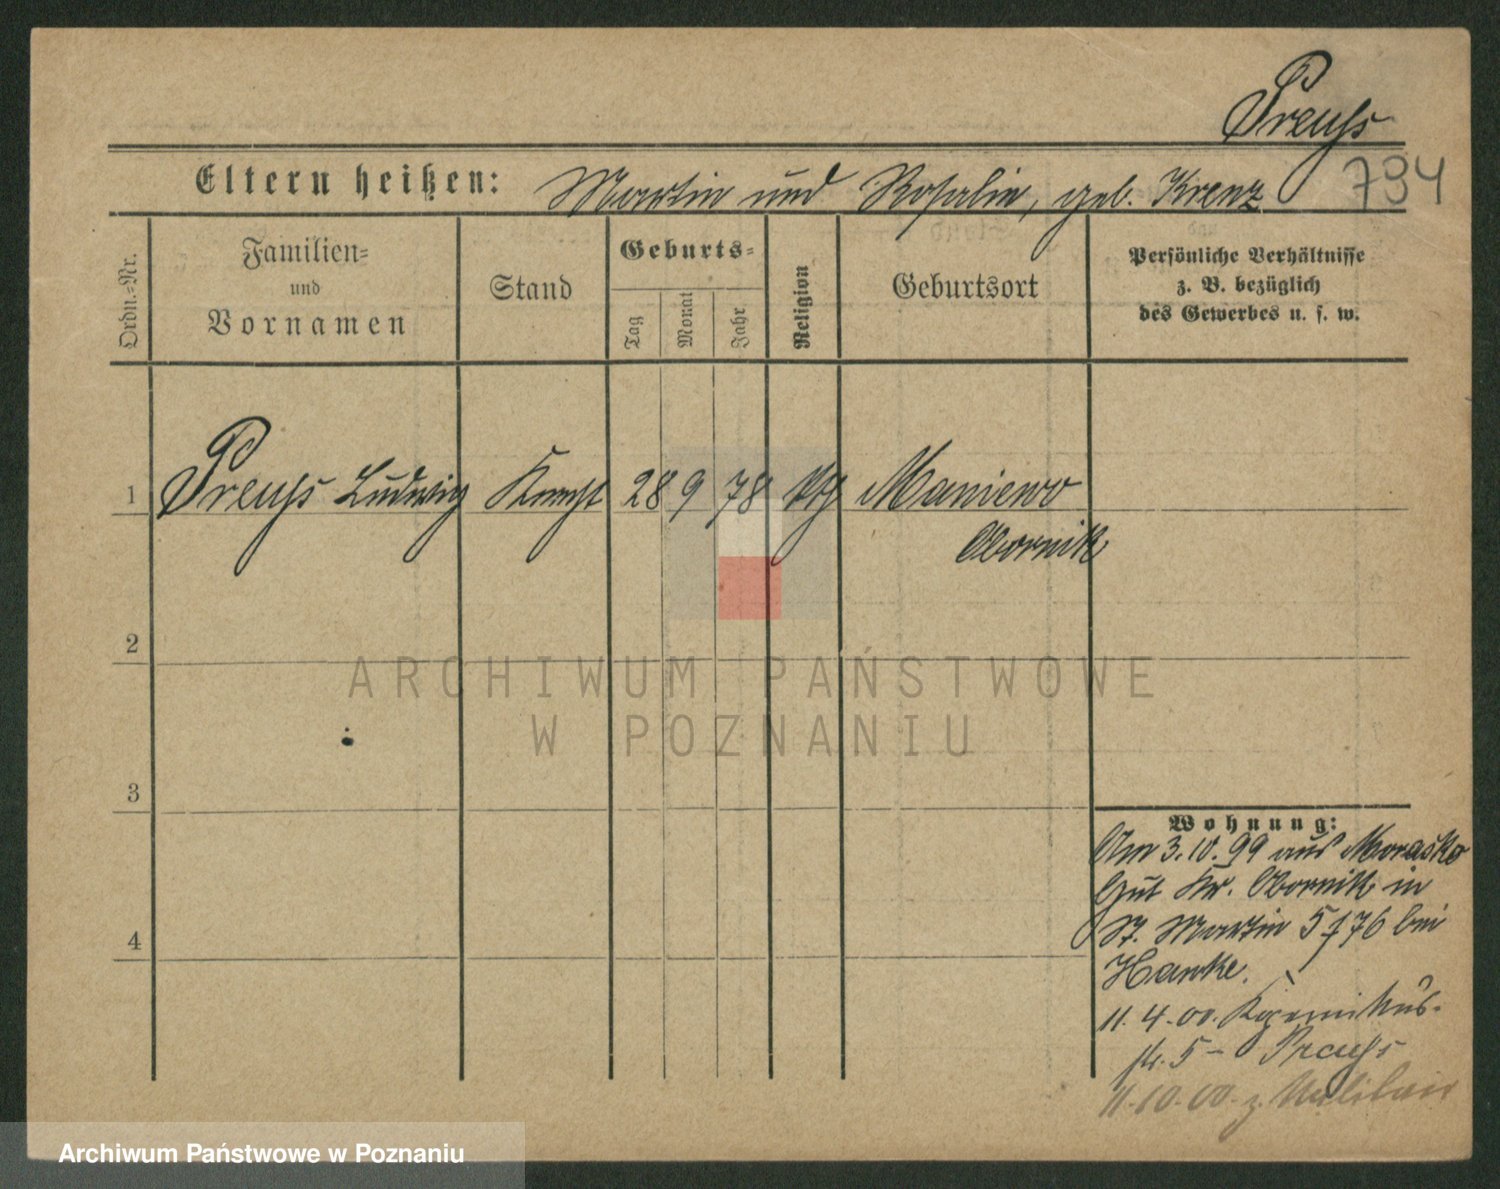 Preuſs
794
Eltern heißen: Martin und Rosalie, geb. Krenz
Ordn.-Nr.
Familien-
und
Vornamen
Stand
Geburts-
Tag
Monat
Jahr
Religion
Geburtsort
Persönliche Verhältnisse
z. B. bezüglich
des Gewerbes u. s. w.
1 Preuſs Ludwig Knecht 28 9 78 Maniewo
Obornik
2
3
4
Wohnung:
Am 3.10.99 aus Morasko
Gut Kr. Obornik in
St. Martin 576 bei
Hanke.
11.4.00.
str. 5 - Preuſs
11.10.00. z. Militair
ARCHIWUM PAŃSTWOWE
W POZNANIU
Archiwum Państwowe w Poznaniu